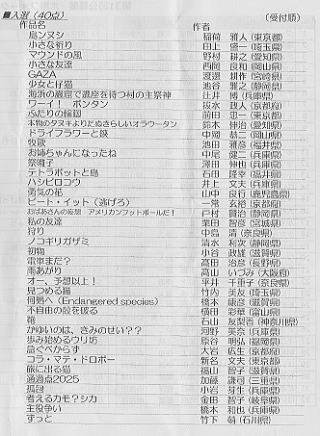 ■入選（40点） （受付順）
作品名 作者
島ンヌシ 稲荷 雅人（東京都）
小さな祈り 田上 悠一（埼玉県）
マウンドの風 野村 耕之（愛知県）
小さな友達 西岡 良和（岡山県）
GAZA 渡邊 耕作（宮崎県）
少女と仔猫 池谷 雅之（静岡県）
海浜の巌窟で慶座を待つ村の主祭神 辻井 博（兵庫県）
ワーイ！ ボンタン 抜水 政人（京都府）
ふたりの輪廻 前田 忠一（東京都）
本物のタヌキよりたぬきらしいオラウータン 鈴木 伸治（愛知県）
ドライフラワーと鋏 中岡 恭二（岡山県）
牧歌 池田 雅彦（福井県）
お姉ちゃんになったね 中尾 健二（兵庫県）
祭囃子 澤田 伸也（兵庫県）
テトラポットと島 石田 隆幸（福井県）
ハシビロコウ 井上 文夫（兵庫県）
勇気の花 山中 良行（鹿児島県）
ビート・イット（逃げろ） 一常 玄裕（京都府）
おばあさんの妄想 アメリカンフットボールだ！ 戸村 賢治（静岡県）
私の友達 栗田 智彦（宮城県）
狩り 中島 清（奈良県）
ノコギリガザミ 清水 利次（静岡県）
初物 小谷 政雄（滋賀県）
電車まだ？ 髙田 治彦（長野県）
雨あがり 高山 いづみ（大阪府）
オー、予想以上！ 平井 千重子（奈良県）
見つめる猫 竹内 美友（埼玉県）
何処へ（Endangered species） 橋本 康彦（滋賀県）
不自由の殻を破る 横田 彩華（富山県）
鞄 石山 友梨香（神奈川県）
かゆいのは、さみのせい？？ 河野 美奈（兵庫県）
歩み始めるウリ坊 原谷 明弘（福岡県）
急ぐべからず 大岩 広生（京都府）
コラ・マテ・ドロボー 新名 文夫（東京都）
旅に出る猫 福山 智子（滋賀県）
通過点2025 加藤 謙司（三重県）
孤高 小岩 芽生（兵庫県）
考えるカモ？シカ 金田 智子（岐阜県）
主役争い 橋本 和也（兵庫県）
ずっと 竹下 萌（石川県）